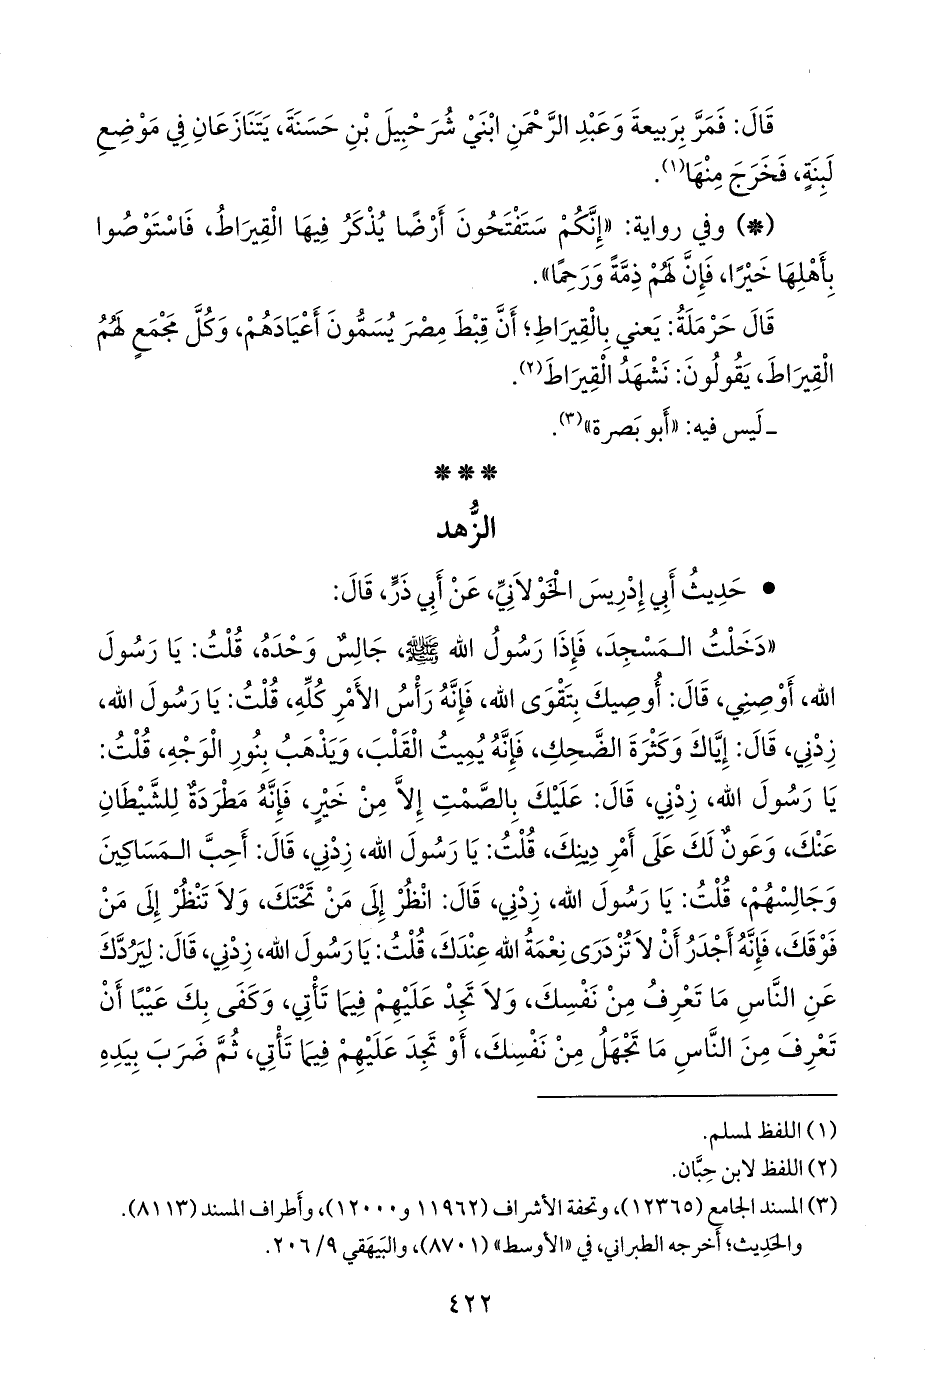 قَالَ: فَمَرَّ بِرَبيعةَ وَعَبْدِ الرَّحْمَنِ ابْنَيْ شُرَحْبِيلَ بْنِ حَسَنَةَ، يَتَنَازَعَانِ فِي مَوْضِعِ
لَبِنَةٍ، فَخَرَجَ مِنْهَا(١).
(*) وفي رواية: «إِنَّكُمْ سَتَفْتَحُونَ أَرْضًا يُذْكَرُ فِيهَا الْقِيرَاطُ، فَاسْتَوْصُوا
بِأَهْلِهَا خَيْرًا، فَإِنَّ لَهُمْ ذِمَّةً وَرَحِمًا».
قَالَ حَرْمَلَةُ: يَعني بِالْقِيرَاطِ؛ أَنَّ قِبْطَ مِصْرَ يُسَمُّونَ أَعْيَادَهُمْ، وَكُلَّ مَجْمَعٍ لَهُمُ
الْقِيرَاطَ، يَقُولُونَ: نَشْهَدُ الْقِيرَاطَ(٢).
ـ لَيس فيه: «أَبو بَصرة»(٣).
***
الزُّهد
• حَدِيثُ أَبِي إِدْرِيسَ الْخَوْلاَنِيِّ، عَنْ أَبِي ذَرٍّ، قَالَ:
«دَخَلْتُ الـمَسْجِدَ، فَإِذَا رَسُولُ الله ﷺ، جَالِسٌ وَحْدَهُ، قُلْتُ: يَا رَسُولَ
الله، أَوْصِنِي، قَالَ: أُوصِيكَ بِتَقْوَى الله، فَإِنَّهُ رَأْسُ الأَمْرِ كُلِّهِ، قُلْتُ: يَا رَسُولَ الله،
زِدْنِي، قَالَ: إِيَّاكَ وَكَثْرَةَ الضَّحِكِ، فَإِنَّهُ يُمِيتُ الْقَلْبَ، وَيَذْهَبُ بِنُورِ الْوَجْهِ، قُلْتُ:
يَا رَسُولَ الله، زِدْنِي، قَالَ: عَلَيْكَ بِالصَّمْتِ إِلاَّ مِنْ خَيْرٍ، فَإِنَّهُ مَطْرَدَةٌ لِلشَّيْطَانِ
عَنْكَ، وَعَونٌ لَكَ عَلَى أَمْرِ دِينِكَ، قُلْتُ: يَا رَسُولَ الله، زِدْنِي، قَالَ: أَحِبَّ الـمَسَاكِينَ
وَجَالِسْهُمْ، قُلْتُ: يَا رَسُولَ الله، زِدْنِي، قَالَ: انْظُرْ إِلَى مَنْ تَحْتَكَ، وَلاَ تَنْظُرْ إِلَى مَنْ
فَوْقَكَ، فَإِنَّهُ أَجْدَرُ أَنْ لاَ تُزْدَرَى نِعْمَةُ الله عِنْدَكَ، قُلْتُ: يَا رَسُولَ الله، زِدْنِي، قَالَ: لِيَرُدَّكَ
عَنِ النَّاسِ مَا تَعْرِفُ مِنْ نَفْسِكَ، وَلاَ تَجِدْ عَلَيْهِمْ فِيمَا تَأْتِي، وَكَفَى بِكَ عَيْبًا أَنْ
تَعْرِفَ مِنَ النَّاسِ مَا تَجْهَلُ مِنْ نَفْسِكَ، أَوْ تَجِدَ عَلَيْهِمْ فِيمَا تَأْتِي، ثُمَّ ضَرَبَ بِيَدِهِ
(١) اللفظ لمسلم.
(٢) اللفظ لابن حِبَّان.
(٣) المسند الجامع (١٢٣٦٥)، وتحفة الأشراف (١١٩٦٢ و١٢٠٠٠)، وأطراف المسند (٨١١٣).
والحَدِيث؛ أَخرجه الطبراني، في «الأوسط» (٨٧٠١)، والبَيهَقي ٩/ ٢٠٦.
٤٢٢